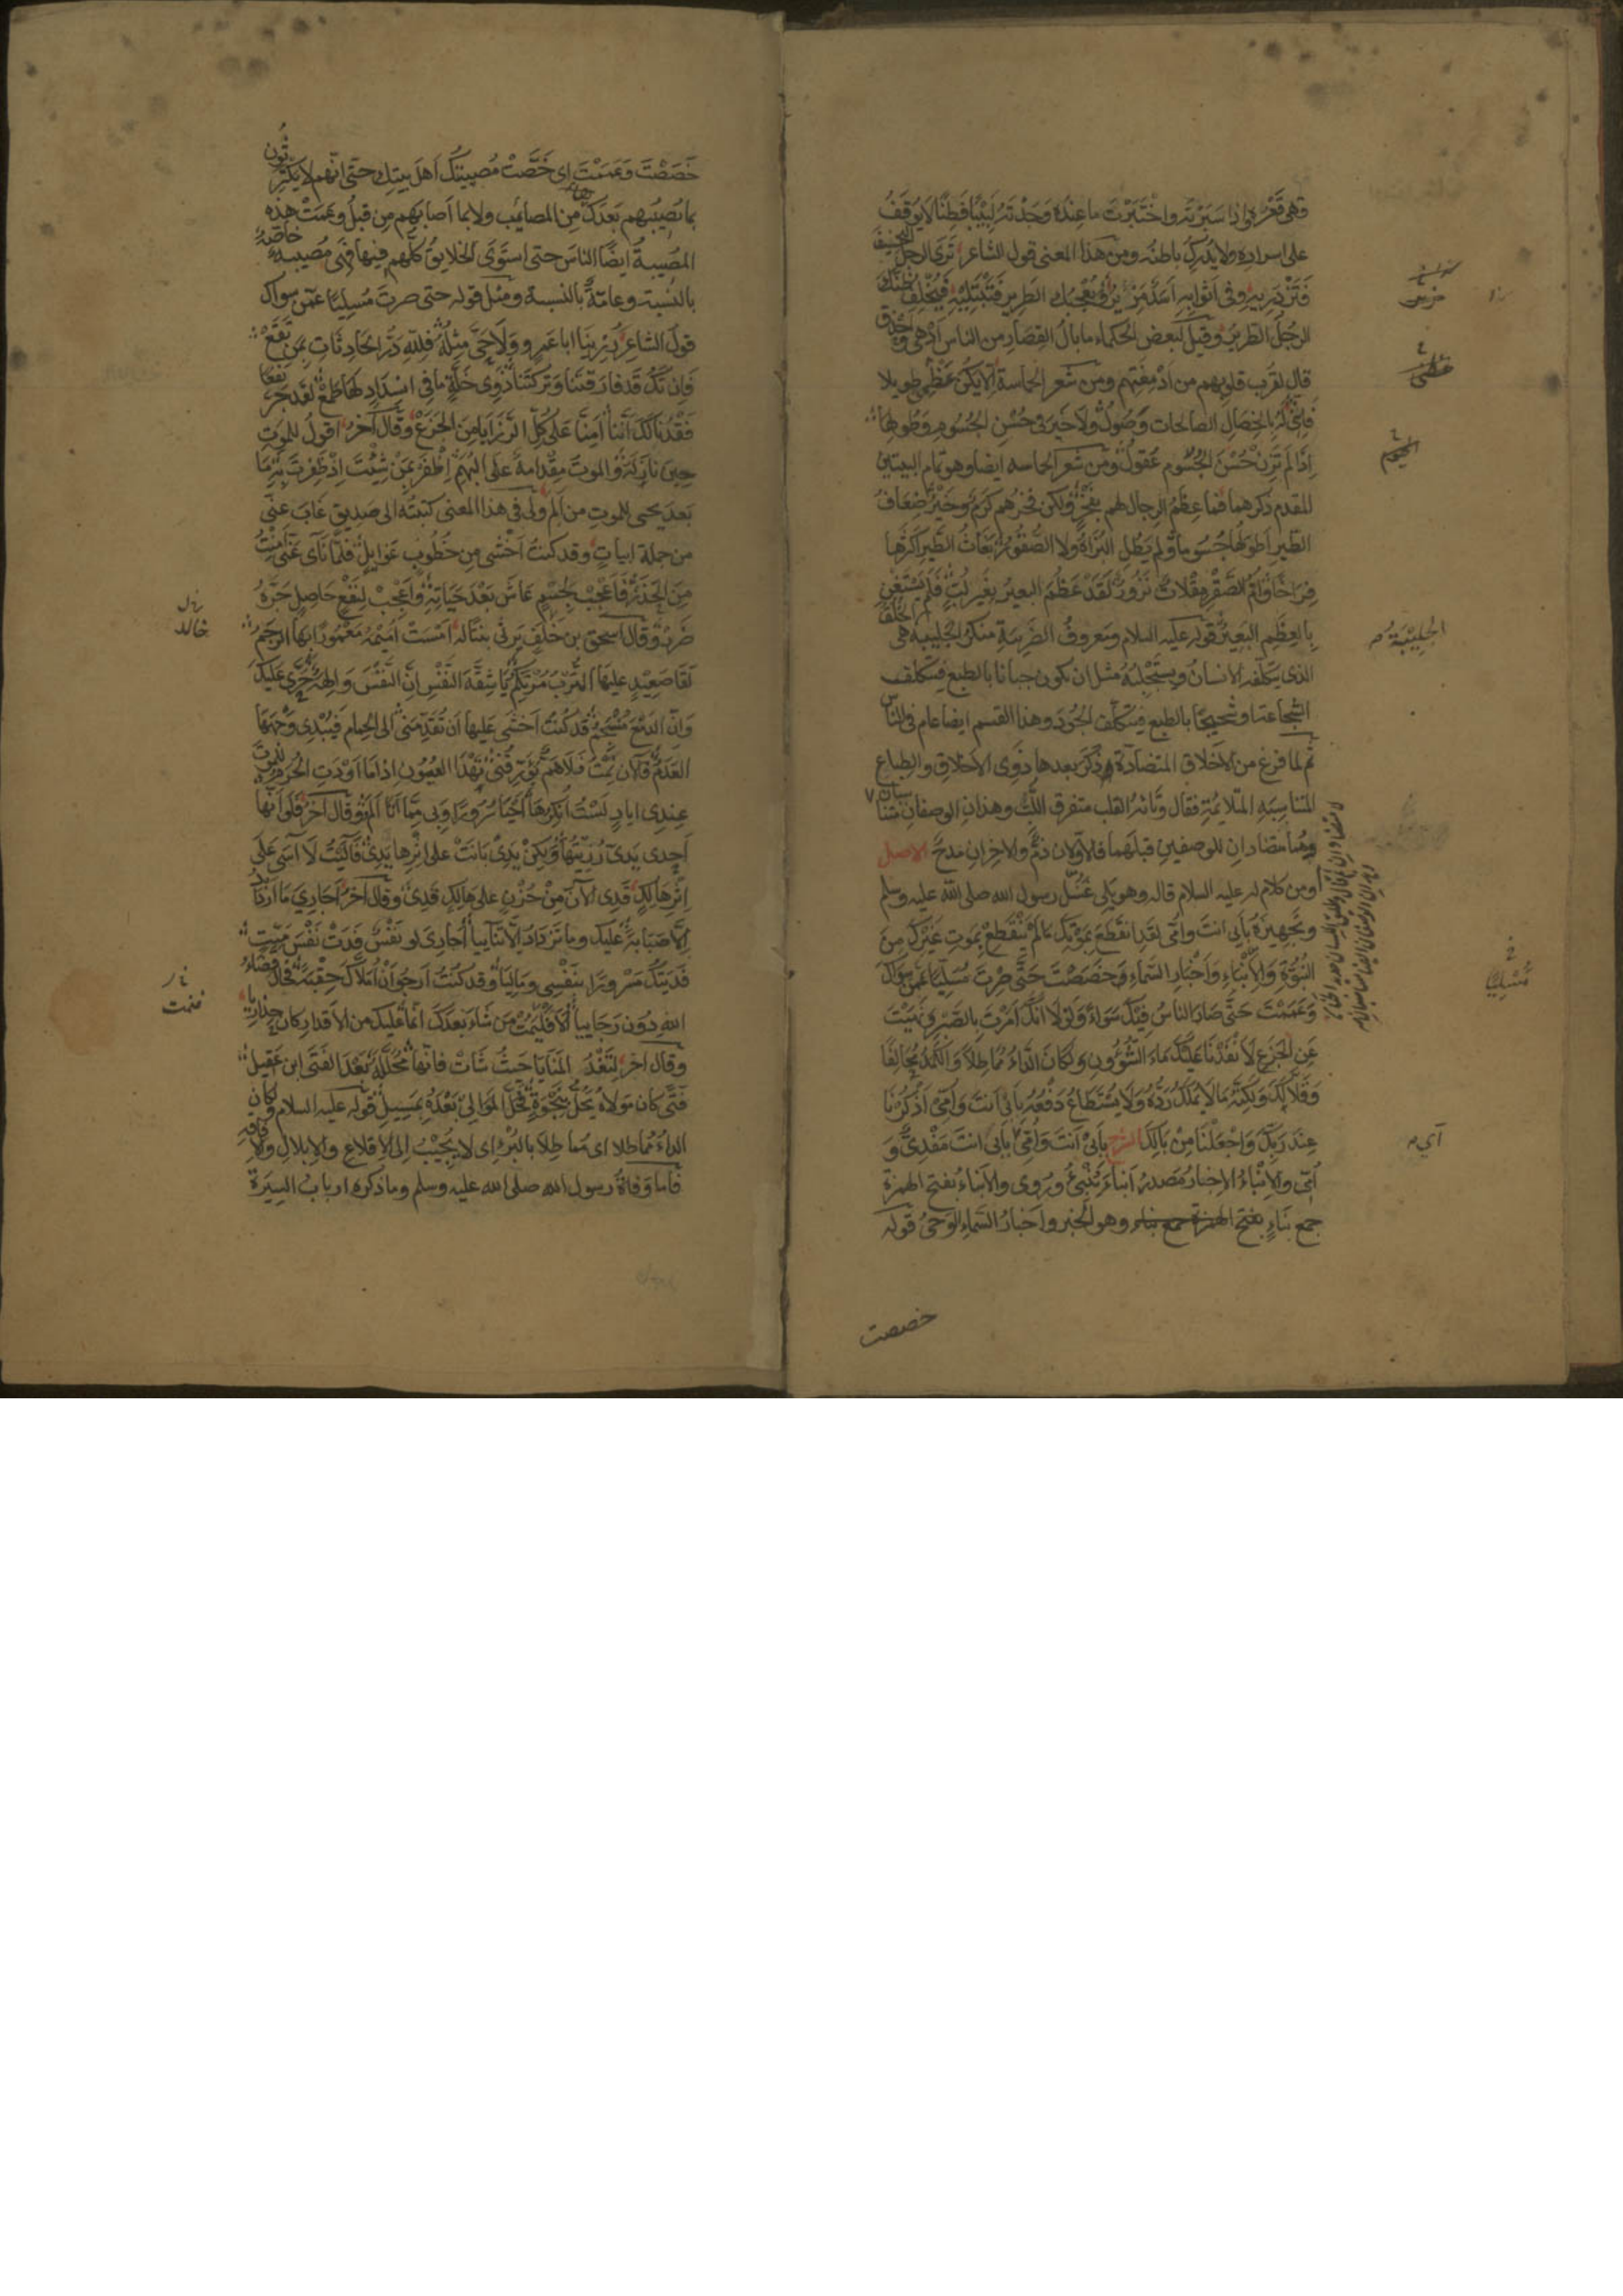 وهي قعره واذا سبرته واختبرت ما عنده وجدته لبيبا فطنا لا يوقف
على اسراره ولا يدرك باطنه ومن هذا المعنى قول الشاعر ترى الرجل النحيف
فتزدريه وفي اثوابه اسد مزير ويعجبك الطرير فتبتليه فيخلف ظنك
الرجل الطرير وقيل لبعض الحكماء ما بال القصار من الناس ادهى واحذق
قال لقرب قلوبهم من ادمغتهم ومن شعر الحماسة الا يكن عظمي طويلا
فانني له بالخصال الصالحات وصول ولا خير في حسن الجسوم وطولها
اذا لم تزن حسن الجسوم عقول ومن شعر الحماسه ايضا وهو تمام البيتين
المقدم ذكرهما فما عظم الرجال لهم بفخر ولكن فخرهم كرم وخير ضعاف
الطير اطولها جسوما ولم يطل البزاة ولا الصقور بغاث الطير اكثرها
فراخا وام الصقر مقلات نزور لقد عظم البعير بغير لب فلم يستغن
بالعظم البعير قوله عليه السلام ومعروف الضريبة منكر الجليبه هي الخلق
الذي يتكلفه الانسان ويستجلبه مثل ان يكون جبانا بالطبع فيتكلف
الشجاعة او شحيحا بالطبع فيتكلف الجود وهذا القسم ايضا عام في الناس
ثم لما فرغ من الاخلاق المتضادة ذكر بعدها ذوى الاخلاق والطباع
المتناسبه المتلايمة فقال وتائه القلب متفرق اللب وهذان الوصفان متناسبان
وهما متضادان للوصفين قبلهما فالاولان ذم والاخران مدح الاصل
ومن كلام له عليه السلام قاله وهو يلي غسل رسول الله صلى الله عليه وسلم
وتجهيزه بابي انت وامي لقد انقطع بموتك ما لم ينقطع بموت غيرك من
النبوة والانباء واخبار السماء وخصصت حتى صرت مسليا عمن سواك
وعممت حتى صار الناس فيك سواء ولولا انك امرت بالصبر ونهيت
عن الجزع لانفدنا عليك ماء الشؤون ولكان الداء مماطلا والكمد محالفا
وقلالك ولكنه ما لا يملك رده ولا يستطاع دفعه بابي انت وامي اذكرنا
عند ربك واجعلنا من بالك الشرح بابي انت وامي اي بابي انت مفدى و
امي والانباء الاخبار مصدر انباء ينبئ وروى والانباء بفتح الهمزة
جمع نباء بفتح الهمزة جمع نباء وهو الخبر واخبار السماء الوحي قوله
خصصت
الجليبة
مسليا
خصصت وعممت اي خصت مصيبتك اهل بيتك حتى انهم لا يكترثون
بما يصيبهم بعدك من المصائب ولا بما اصابهم من قبل وعمت هذه
المصيبة ايضا الناس حتى استوى الخلايق كلهم فيها فهي مصيبة خاصة
بالنسبة وعامة بالنسبة ومثل قوله حتى صرت مسليا عمن سواك
قول الشاعر رزينا ابا عمرو ولا حي مثله فلله در الحادثات بمن تقع
فان تك قد فارقتنا وتركتنا ذوى خلة ما في انسداد لها طمع لقد جر نفعا
فقدنا لك اننا امنا على كل الرزايا من الجزع وقال آخر اقول للموت
حين نازله والموت مقدامة على البهم اظفر بمن شئت اذ ظفرت به ما
بعد يحيى للموت من الم ولي في هذا المعنى كتبته الى صديق غاب عني
من جملة ابيات وقد كنت اخشى من خطوب غوايل فلما ناى عني امنت
من الحذر فاعجب لجسم عاش بعد حياته واعجب لنفع حاصل جره
ضرر وقال اسحق بن خلف يرثى بنتا له امست اميمة معمورا بها الرجم
لقا صعيد عليها الترب مرتكم يا شقة النفس ان النفس والهة حرى عليك
وان الدمع منسجم قد كنت اخشى عليها ان تقدمني الى الحمام فيبدى وجهها
العدم فالآن نمت فلا هم يؤرقني تهدا العيون اذا ما اودت الحرم للموت
عندي اياد لست انكرها احيا سرورا وبي مما اتى الم وقال آخر فلو انها
احدى يدي رزيتها ولكن يدي بانت على اثرها يدي فآليت لا آسى على
اثر هالك قدي الآن من حزن على هالك قدي وقال آخر اجاري ما ازداد
الا صبابة عليك وما تزداد الا تنائيا اجاري لو نفس فدت نفس ميت
فديتك مسرورا بنفسي وماليا وقد كنت ارجو ان املاك حقبة فحال قضاء
الله دون رجائيا الا فليمت من شاء بعدك انما عليك من الاقدار كان حذاريا
وقال آخر لتغد المنايا حيث شاءت فانها محللة بعد الفتى ابن عقيل
فتى كان مولاه يحل بنجوة فحل الموالي بعده بمسيل قوله عليه السلام ولكان
الداء مماطلا اي مماطلا بالبرء اي لا يجيب الى الاقلاع والابلال والافاقه
فاما وفاة رسول الله صلى الله عليه وسلم وما ذكره ارباب السيرة
خالد